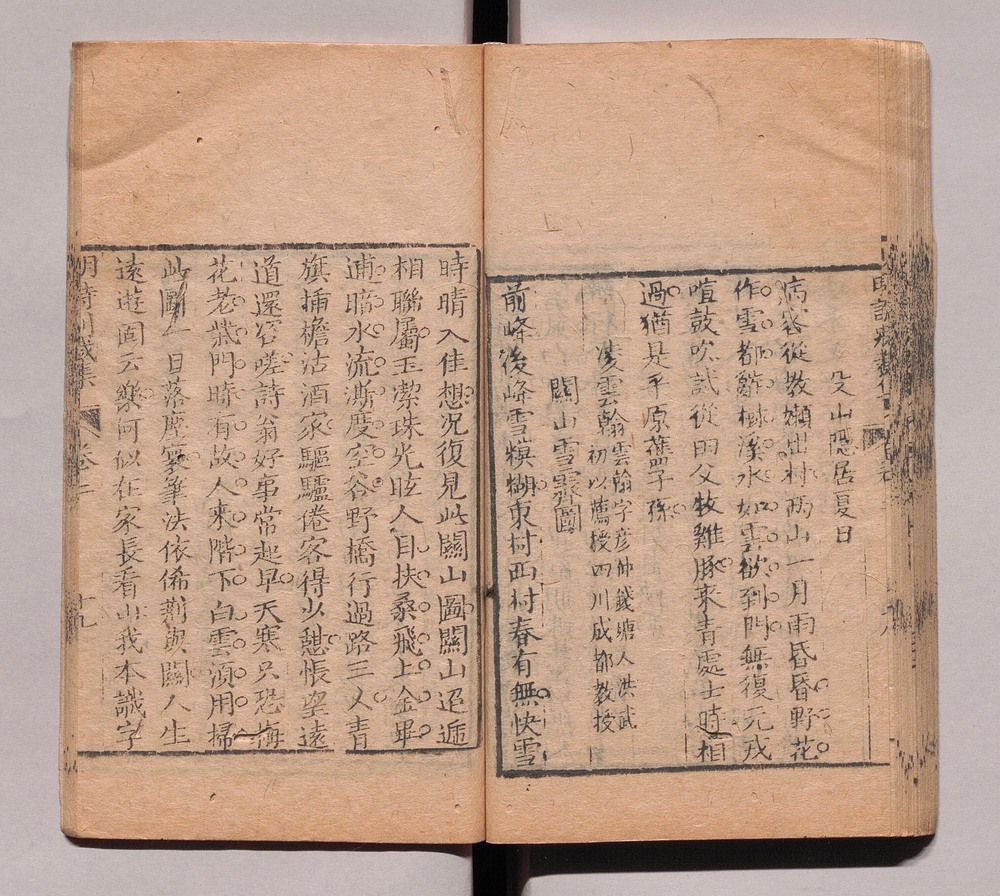 明詩別裁集
殳山隱居夏日
病客從教嬾出村兩山一月雨昏昏野花
作雪都辭樹溪水如雲欲到門無復元戎
喧鼓吹試從田父牧雞豚來青處士時相
過猶是平原舊子孫
淩雲翰 雲翰字彥仲錢塘人洪武
初以薦授四川成都教授
關山雪霽圖
前峰後峰雪糢糊東村西村春有無快雪
時晴入佳想況復見此關山圖關山迢遞
相聯屬玉潔珠光眩人目扶桑飛上金畢
逋暗水流澌度空谷野橋行過路三乂青
旗插檐沽酒家驅驢倦客得少憩悵望遠
道還容嗟詩翁好事常起早天寒只恐海
花老柴門時有故人來階下白雲須用掃
此圖一日落塵寰筆法依俙荊與關人生
遠遊固云樂何似在家長看山我本識字
明詩別裁集 卷二 十九